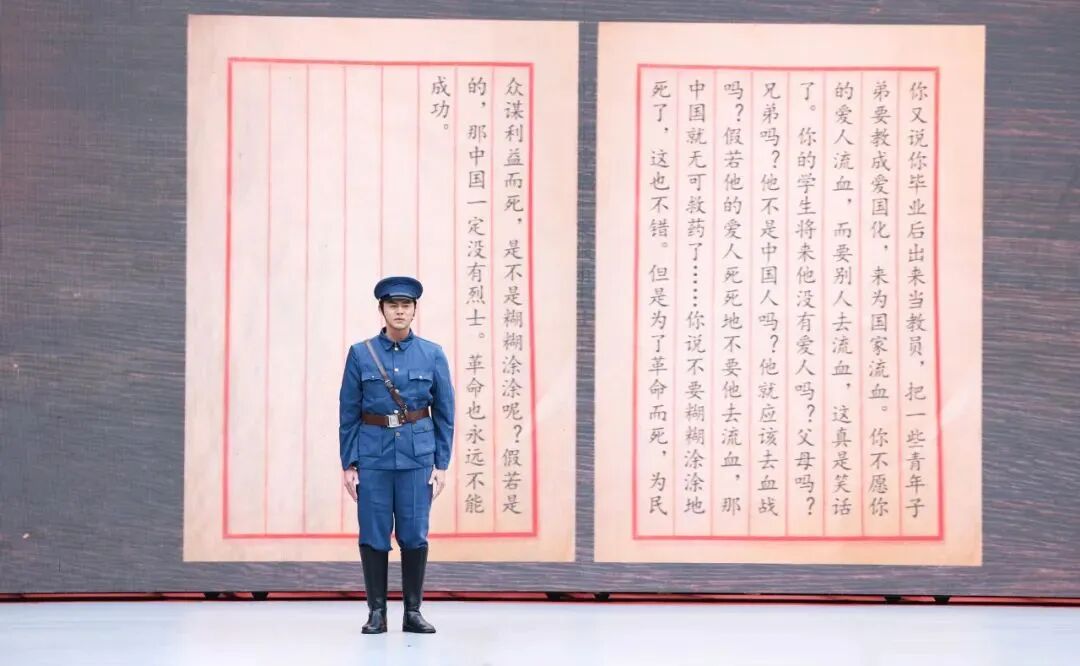 你又说你毕业后出来当教员，把一些青年子
弟要教成爱国化，来为国家流血。你不愿你
的爱人流血，而要别人去流血，这真是笑话
了。你的学生将来他没有爱人吗？父母吗？
兄弟吗？他不是中国人吗？他就应该去血战
吗？假若他的爱人死死地不要他去流血，那
中国就无可救药了……你说不要糊糊涂涂地
死了，这也不错。但是为了革命而死，为民
众谋利益而死，是不是糊糊涂涂呢？假若是
的，那中国一定没有烈士。革命也永远不能
成功。